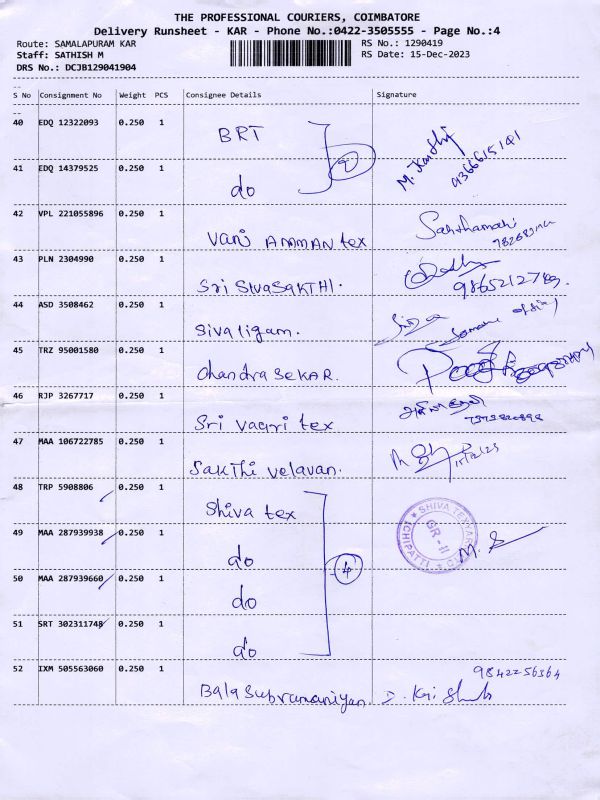 THE PROFESSIONAL COURIERS, COIMBATORE
Delivery Runsheet - KAR - Phone No.:0422-3505555 - Page No.:4
Route: SAMALAPURAM KAR RS No.: 1290419
Staff: SATHISH M RS Date: 15-Dec-2023
DRS No.: DCJB129041904
--
S No Consignment No Weight PCS Consignee Details Signature
--
40 EDQ 12322093 0.250 1 BRT
2
41 EDQ 14379525 0.250 1 do M. 9366615141
42 VPL 221055896 0.250 1 vani AMMAN tex
43 PLN 2304990 0.250 1 Sri SivaSAKTHI. 9865212789
44 ASD 3508462 0.250 1 Sivaligam.
45 TRZ 95001580 0.250 1 chandra SEKAR.
46 RJP 3267717 0.250 1 Sri vagri tex
47 MAA 106722785 0.250 1 SAKTHi velavan. 15/12/23
48 TRP 5908806 0.250 1 Shiva tex
SHIVA TEXYARN
GR-II
ICHIPATTI
49 MAA 287939938 0.250 1 do M. S
4
50 MAA 287939660 0.250 1 do
51 SRT 302311748 0.250 1 do
52 IXM 505563060 0.250 1 Bala Subramaniyan. 9842256364